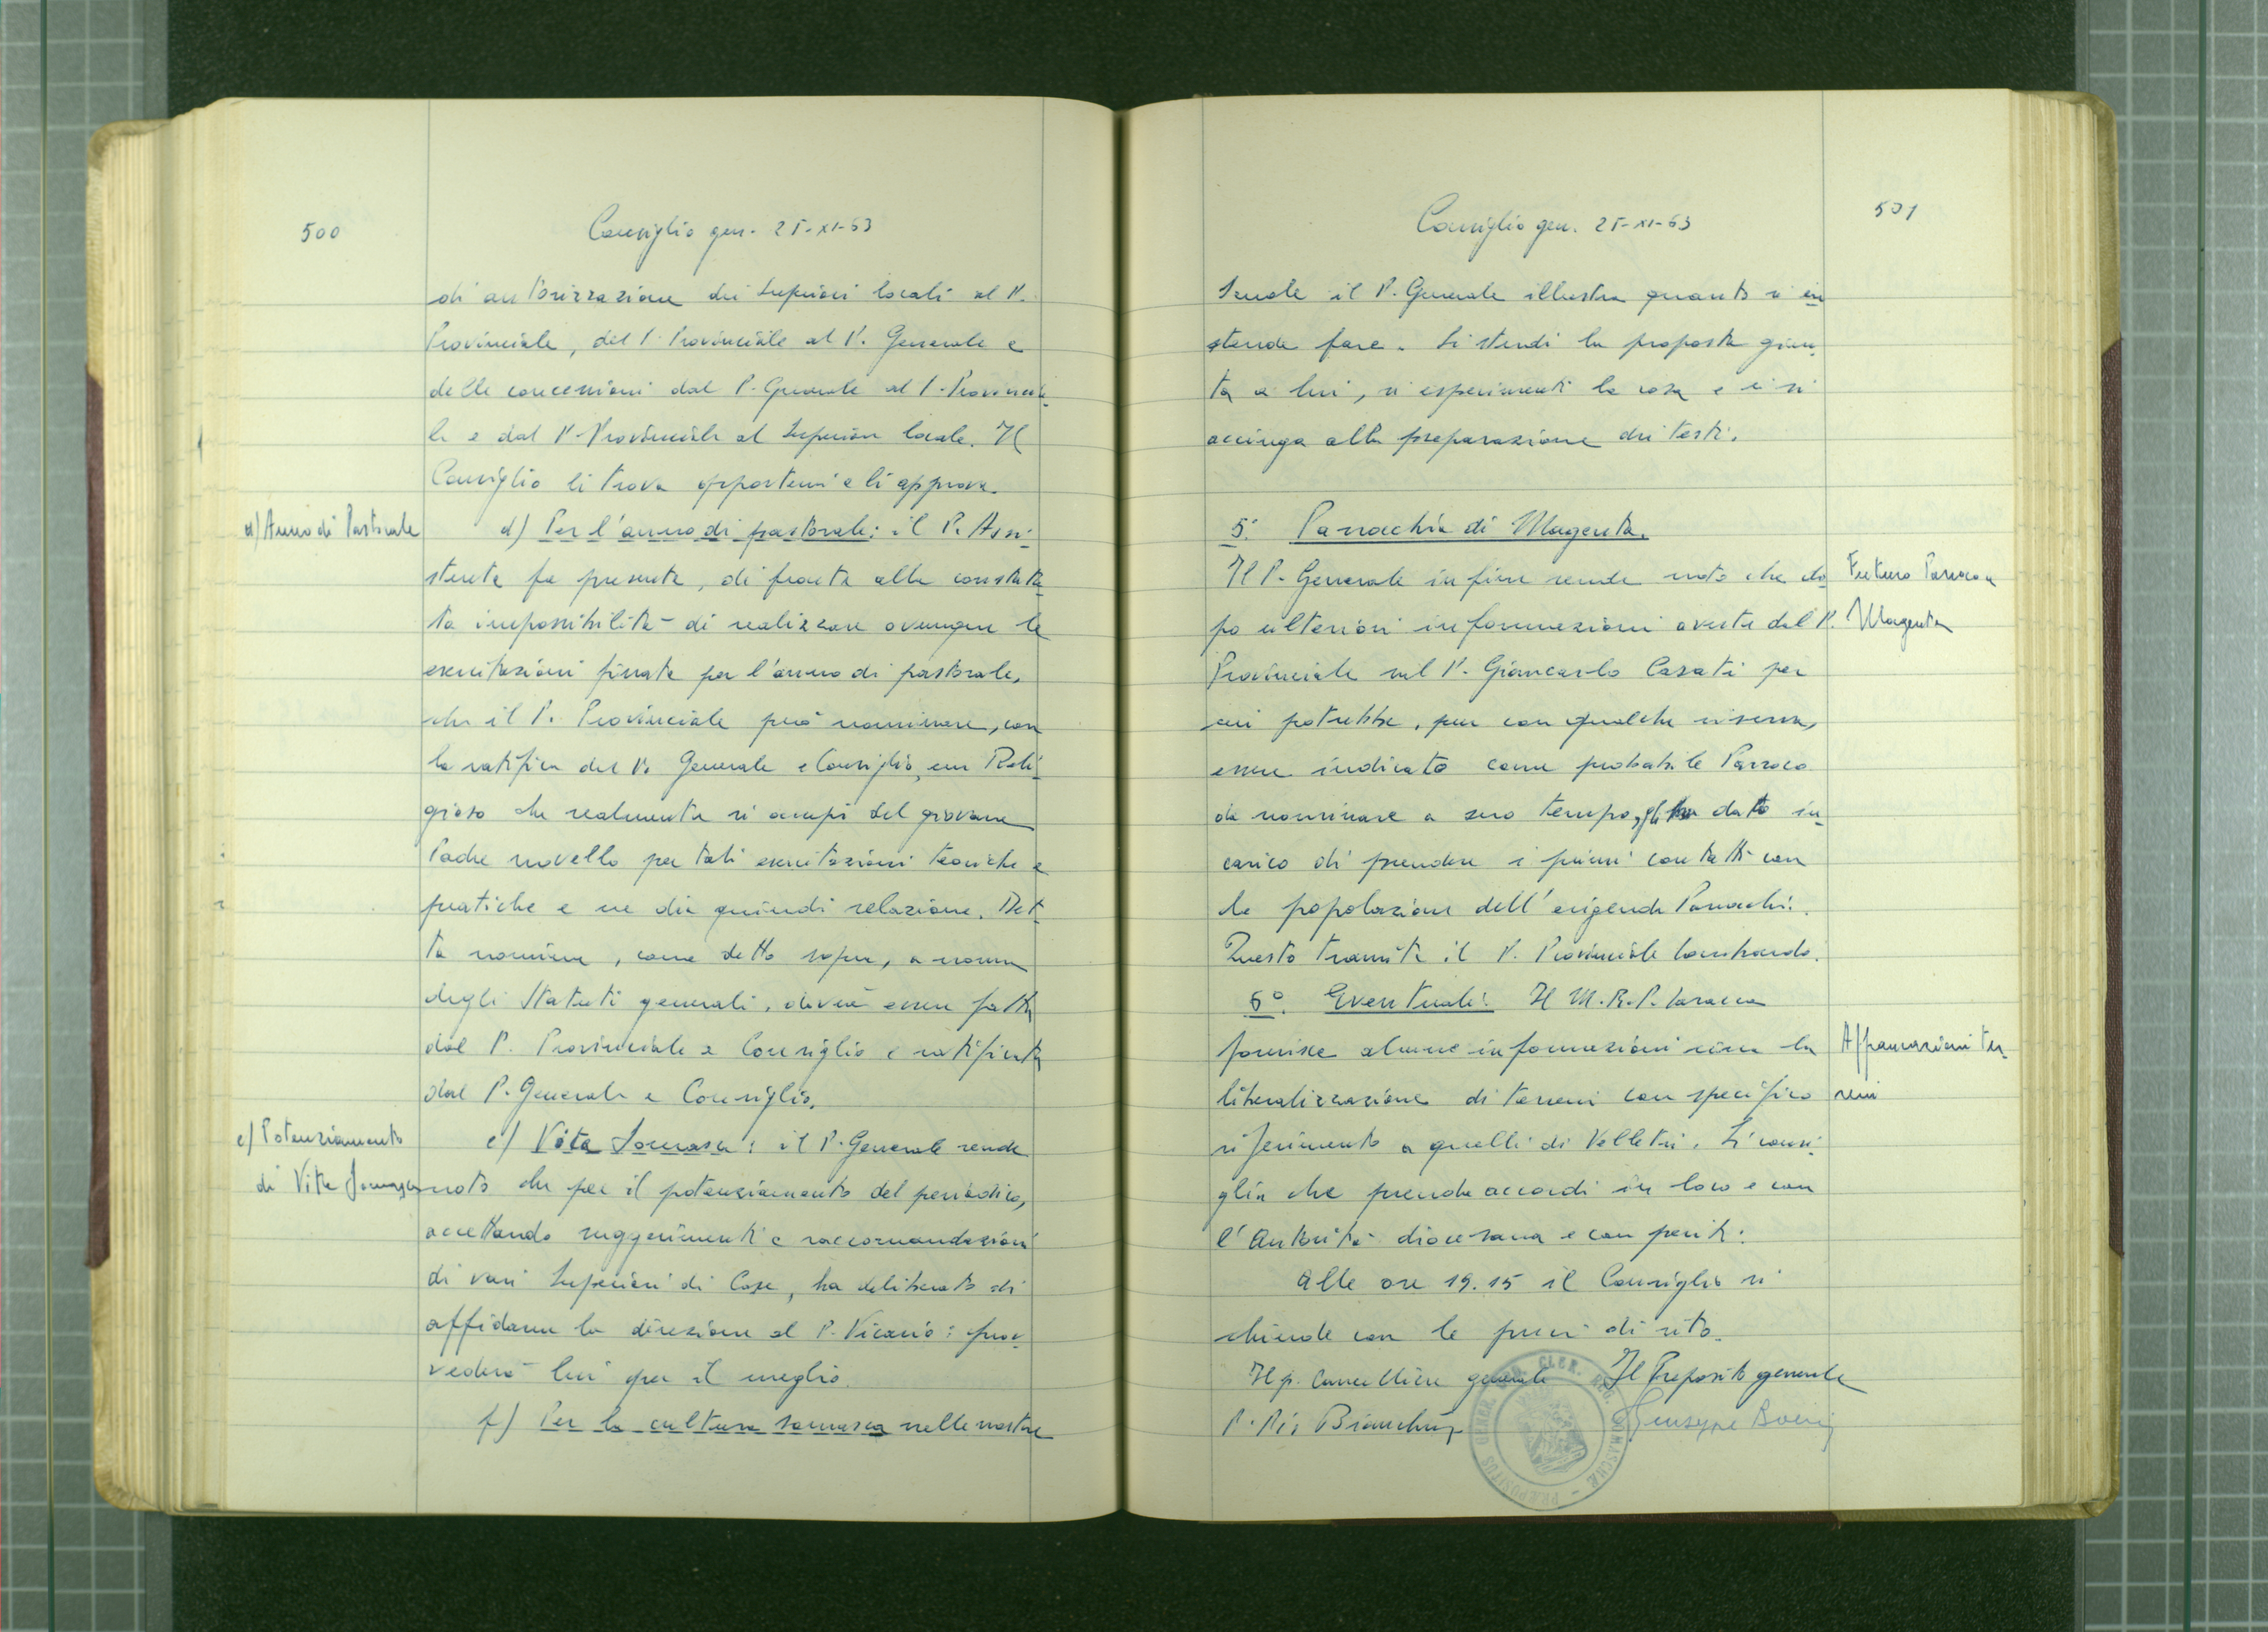 500
Consiglio gen. 25-XI-63
di autorizzazione dei Superiori locali al P.
Provinciale, del P. Provinciale al P. Generale e
delle concessioni dal P. Generale al P. Provincia-
le e dal P. Provinciale al Superiore locale. Il
Consiglio li trova opportuni e li approva.
d) Anno di Pastorale
d) Per l'anno di pastorale: il P. Assi-
stente fa presente, di fronte alla constata-
ta impossibilità di realizzare ovunque le
esercitazioni fissate per l'anno di pastorale,
che il P. Provinciale può nominare, con
la ratifica del P. Generale e Consiglio, un Reli-
gioso che realmente si occupi del giovane
Padre novello per tali esercitazioni teoriche e
pratiche e ne dia quindi relazione. Det-
ta nomina, come detto sopra, a norma
degli Statuti generali, dovrà essere fatta
dal P. Provinciale e Consiglio e ratificata
dal P. Generale e Consiglio.
e) Potenziamento
di Vita Somasca
e) Vita Somasca: il P. Generale rende
noto che per il potenziamento del periodico,
accettando suggerimenti e raccomandazioni
di vari Superiori di Case, ha deliberato di
affidarne la direzione al P. Vicario: prov-
vederà lui per il meglio.
f) Per la cultura somasca nelle nostre
501
Consiglio gen. 25-XI-63
Scuole il P. Generale illustra quanto si in-
tende fare. Si stendi la proposta giun-
ta a lui, si esperimenti la cosa e ci si
accinga alla preparazione dei testi.
5. Parrochia di Magenta.
Il P. Generale infine rende noto che do-
po ulteriori informazioni avute dal P.
Provinciale sul P. Giancarlo Casati per
cui potrebbe, pur con qualche riserva,
essere indicato come probabile Parroco
da nominare a suo tempo, gli ha dato in-
carico di prendere i primi contatti con
la popolazione dell'erigenda Parrochia.
Questo tramite il P. Provinciale lombardo.
Futuro Parroco a
Magenta
6°. Eventuali: Il M.R.P.
fornisce alcune informazioni circa la
liberalizzazione di terreni con specifico
riferimento a quelli di Velletri. Si consi-
glia che prenda accordi in loco e con
l'Autorità diocesana e con periti.
Affrancazioni ter-
reni
Alle ore 19.15 il Consiglio si
chiude con le preci di rito.
Il p. Cancelliere generale Il Preposito generale
P. Pio Bianchini Giuseppe Boeris